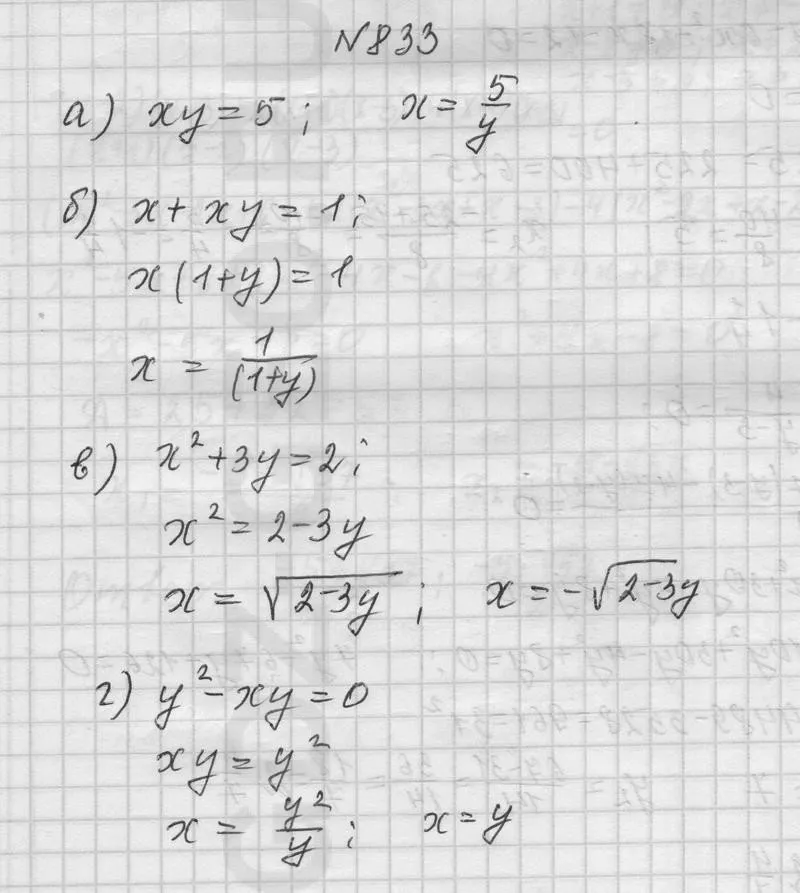 N833
а) xy = 5; x = 5/y
б) x + xy = 1;
x(1+y) = 1
x = 1/(1+y)
в) x² + 3y = 2;
x² = 2 - 3y
x = √(2-3y); x = -√(2-3y)
г) y² - xy = 0
xy = y²
x = y²/y; x = y